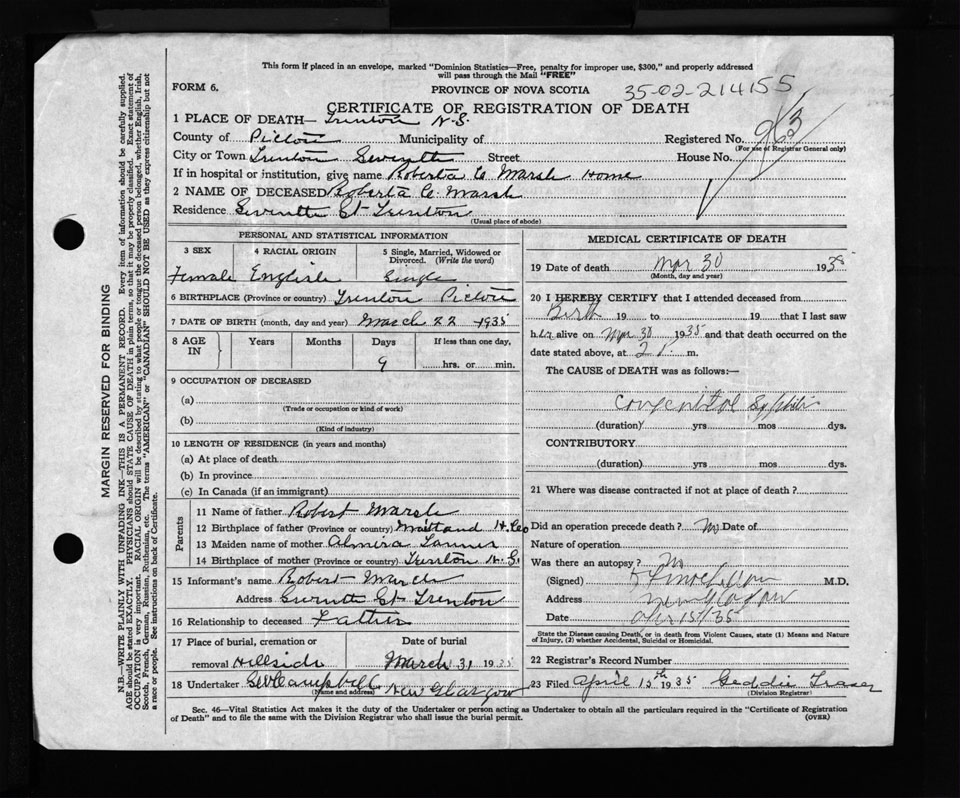 This form if placed in an envelope, marked "Dominion Statistics—Free, penalty for improper use, $300," and properly addressed
will pass through the Mail "FREE"
FORM 6.
PROVINCE OF NOVA SCOTIA
35-02-214155
CERTIFICATE OF REGISTRATION OF DEATH
1 PLACE OF DEATH— Trenton N.S.
County of Pictou Municipality of Registered No. 963
(For use of Registrar General only)
City or Town Trenton Seventh Street House No.
If in hospital or institution, give name Roberta C. Marsh Home
2 NAME OF DECEASED Roberta C. Marsh
Residence Seventh St Trenton
(Usual place of abode)
PERSONAL AND STATISTICAL INFORMATION
3 SEX 4 RACIAL ORIGIN 5 Single, Married, Widowed or Divorced. (Write the word)
Female English Single
6 BIRTHPLACE (Province or country) Trenton Pictou
7 DATE OF BIRTH (month, day and year) March 22 1935
8 AGE IN Years Months Days If less than one day,
9 hrs. or min.
9 OCCUPATION OF DECEASED
(a)
(Trade or occupation or kind of work)
(b)
(Kind of industry)
10 LENGTH OF RESIDENCE (in years and months)
(a) At place of death
(b) In province
(c) In Canada (if an immigrant)
Parents
11 Name of father Robert Marsh
12 Birthplace of father (Province or country) Maitland H. Co
13 Maiden name of mother Almira
14 Birthplace of mother (Province or country) Trenton N.S.
15 Informant's name Robert Marsh
Address Seventh St Trenton
16 Relationship to deceased Father
17 Place of burial, cremation or removal Hillside
Date of burial March 31 1935
18 Undertaker Campbell New Glasgow
(Name and address)
MEDICAL CERTIFICATE OF DEATH
19 Date of death Mar 30 1935
(Month, day and year)
20 I HEREBY CERTIFY that I attended deceased from
Birth 19 to 19 that I last saw
her alive on Mar 30 1935 and that death occurred on
date stated above, at 2 m.
The CAUSE of DEATH was as follows:—
Congenital Syphilis
(duration) yrs mos dys.
CONTRIBUTORY
(duration) yrs mos dys.
21 Where was disease contracted if not at place of death?
Did an operation precede death? No Date of
Nature of operation
Was there an autopsy? No
(Signed) M.D.
Address New Glasgow
Date Apr 15/35
State the Disease causing Death, or in death from Violent Causes, state (1) Means and Nature
of Injury, (2) whether Accidental, Suicidal or Homicidal.
22 Registrar's Record Number
23 Filed April 15th 1935 Geddie Fraser
(Division Registrar)
Sec. 46—Vital Statistics Act makes it the duty of the Undertaker or person acting as Undertaker to obtain all the particulars required in the "Certificate of Registration
of Death" and to file the same with the Division Registrar who shall issue the burial permit.
(OVER)
MARGIN RESERVED FOR BINDING
N.B.—WRITE PLAINLY WITH UNFADING INK—THIS IS A PERMANENT RECORD. Every item of information should be carefully supplied.
AGE should be stated EXACTLY. PHYSICIANS should STATE CAUSE OF DEATH in plain terms, so that it may be properly classified. Exact statement of
OCCUPATION is very important. RACIAL ORIGIN will be described by stating to what people or tongue the deceased person belonged, whether English, Irish,
Scotch, French, German, Russian, Ruthenian, etc. The terms "AMERICAN" or "CANADIAN" SHOULD NOT BE USED as they express citizenship but not
a race or people. See instructions on back of Certificate.